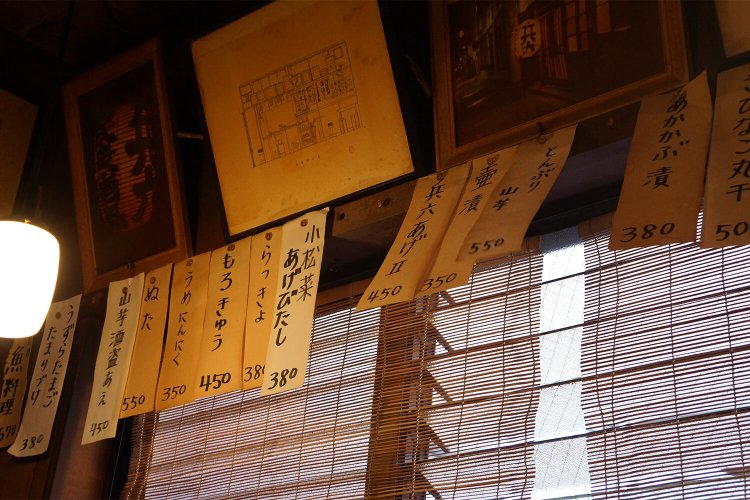 魚料理
370
うずらたまご
たまりづけ
380
山芋酒盗あえ
450
ぬた
550
うめにんにく
350
もろきゅう
450
らっきょ
380
小松菜
あげびたし
380
兵六あげⅡ
450
壺漬
350
とんぶり
山芋
550
あかかぶ漬
380
なご丸干
500
兵六